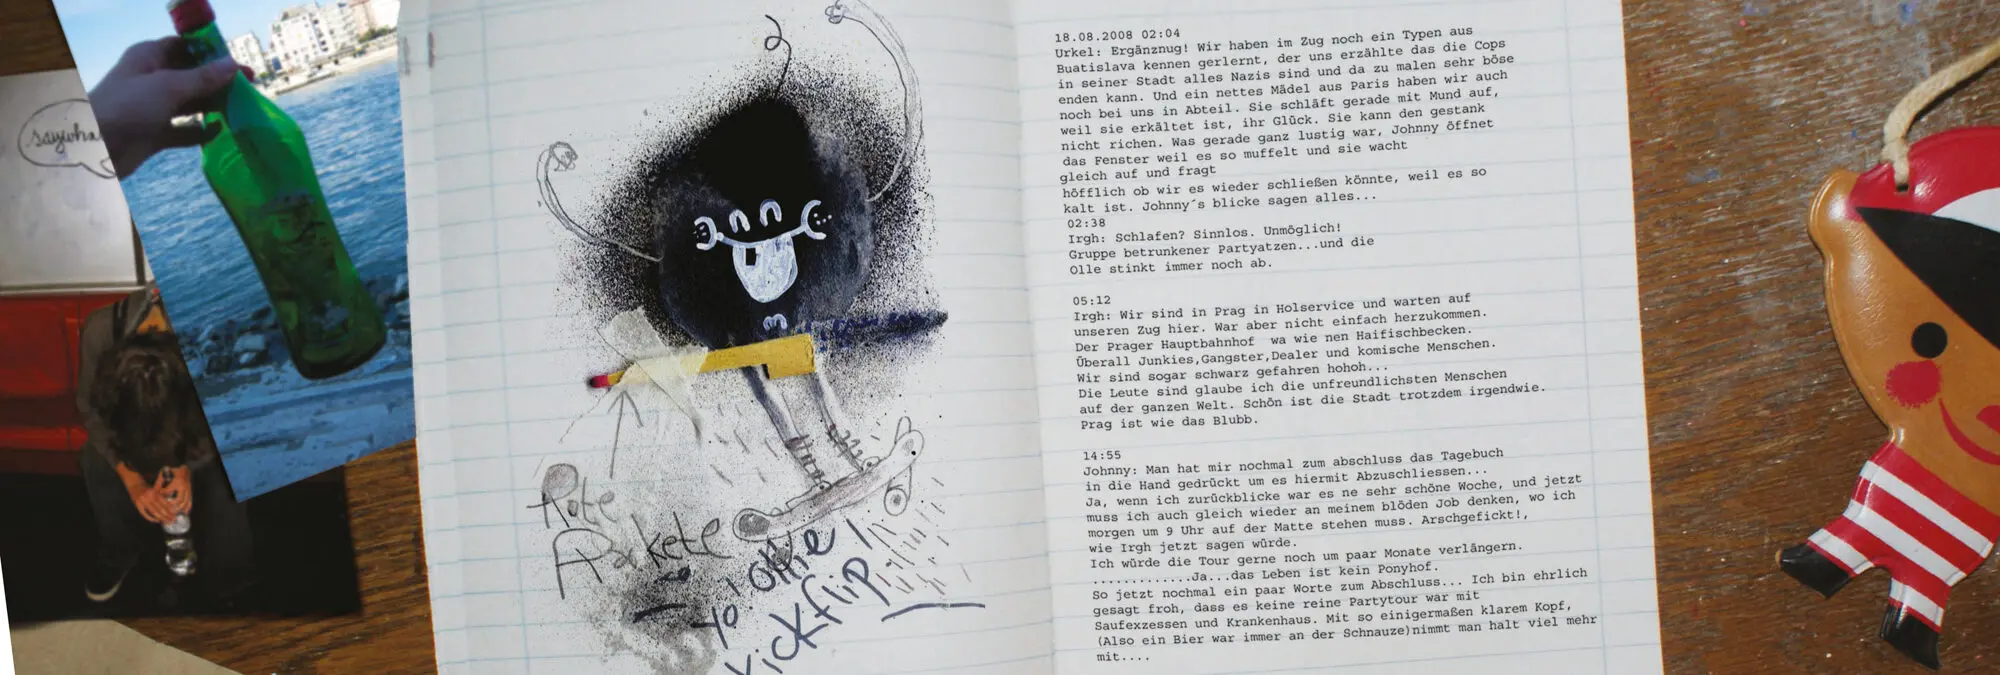 saywha
Rote
Parkete
yo! ollie
kickflip!
18.08.2008 02:04
Urkel: Ergänznug! Wir haben im Zug noch ein Typen aus
Buatislava kennen gerlernt, der uns erzählte das die Cops
in seiner Stadt alles Nazis sind und da zu malen sehr böse
enden kann. Und ein nettes Mädel aus Paris haben wir auch
noch bei uns in Abteil. Sie schläft gerade mit Mund auf,
weil sie erkältet ist, ihr Glück. Sie kann den gestank
nicht richen. Was gerade ganz lustig war, Johnny öffnet
das Fenster weil es so muffelt und sie wacht
gleich auf und fragt
höfflich ob wir es wieder schließen könnte, weil es so
kalt ist. Johnny´s blicke sagen alles...
02:38
Irgh: Schlafen? Sinnlos. Unmöglich!
Gruppe betrunkener Partyatzen...und die
Olle stinkt immer noch ab.
05:12
Irgh: Wir sind in Prag in Holservice und warten auf
unseren Zug hier. War aber nicht einfach herzukommen.
Der Prager Hauptbahnhof wa wie nen Haifischbecken.
Überall Junkies,Gangster,Dealer und komische Menschen.
Wir sind sogar schwarz gefahren hohoh...
Die Leute sind glaube ich die unfreundlichsten Menschen
auf der ganzen Welt. Schön ist die Stadt trotzdem irgendwie.
Prag ist wie das Blubb.
14:55
Johnny: Man hat mir nochmal zum abschluss das Tagebuch
in die Hand gedrückt um es hiermit Abzuschliessen...
Ja, wenn ich zurückblicke war es ne sehr schöne Woche, und jetzt
muss ich auch gleich wieder an meinem blöden Job denken, wo ich
morgen um 9 Uhr auf der Matte stehen muss. Arschgefickt!,
wie Irgh jetzt sagen würde.
Ich würde die Tour gerne noch um paar Monate verlängern.
.............Ja...das Leben ist kein Ponyhof.
So jetzt nochmal ein paar Worte zum Abschluss... Ich bin ehrlich
gesagt froh, dass es keine reine Partytour war mit
Saufexzessen und Krankenhaus. Mit so einigermaßen klarem Kopf,
(Also ein Bier war immer an der Schnauze)nimmt man halt viel mehr
mit....